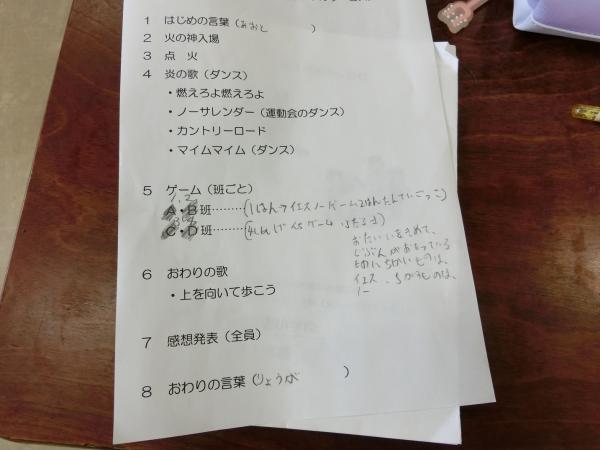 1 はじめの言葉（あおと）
2 火の神入場
3 点 火
4 炎の歌（ダンス）
・燃えろよ燃えろよ
・ノーサレンダー（運動会のダンス）
・カントリーロード
・マイムマイム（ダンス）
5 ゲーム（班ごと）
1,2
A・B班………(1はん→イエスノーゲーム 2はんたんていごっこ)
C・D班………(
おたいいをきめて、
じぶんがおもっている
ものにちかいものは、
イエス、ちがうものは、
ノー
6 おわりの歌
・上を向いて歩こう
7 感想発表（全員）
8 おわりの言葉（りょうが）